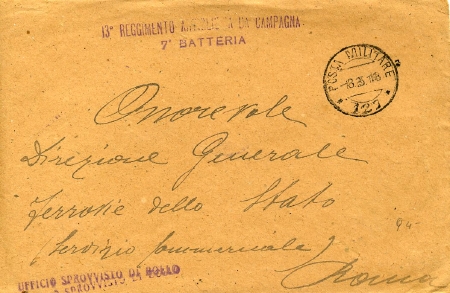 13° REGGIMENTO ARTIGLIERIA DA CAMPAGNA
7ª BATTERIA
POSTA MILITARE
127
Onorevole
Direzione Generale
Ferrovie dello Stato
(Servizio Commerciale)
Roma
UFFICIO SPROVVISTO DI BOLLO
SPROVVISTO DI